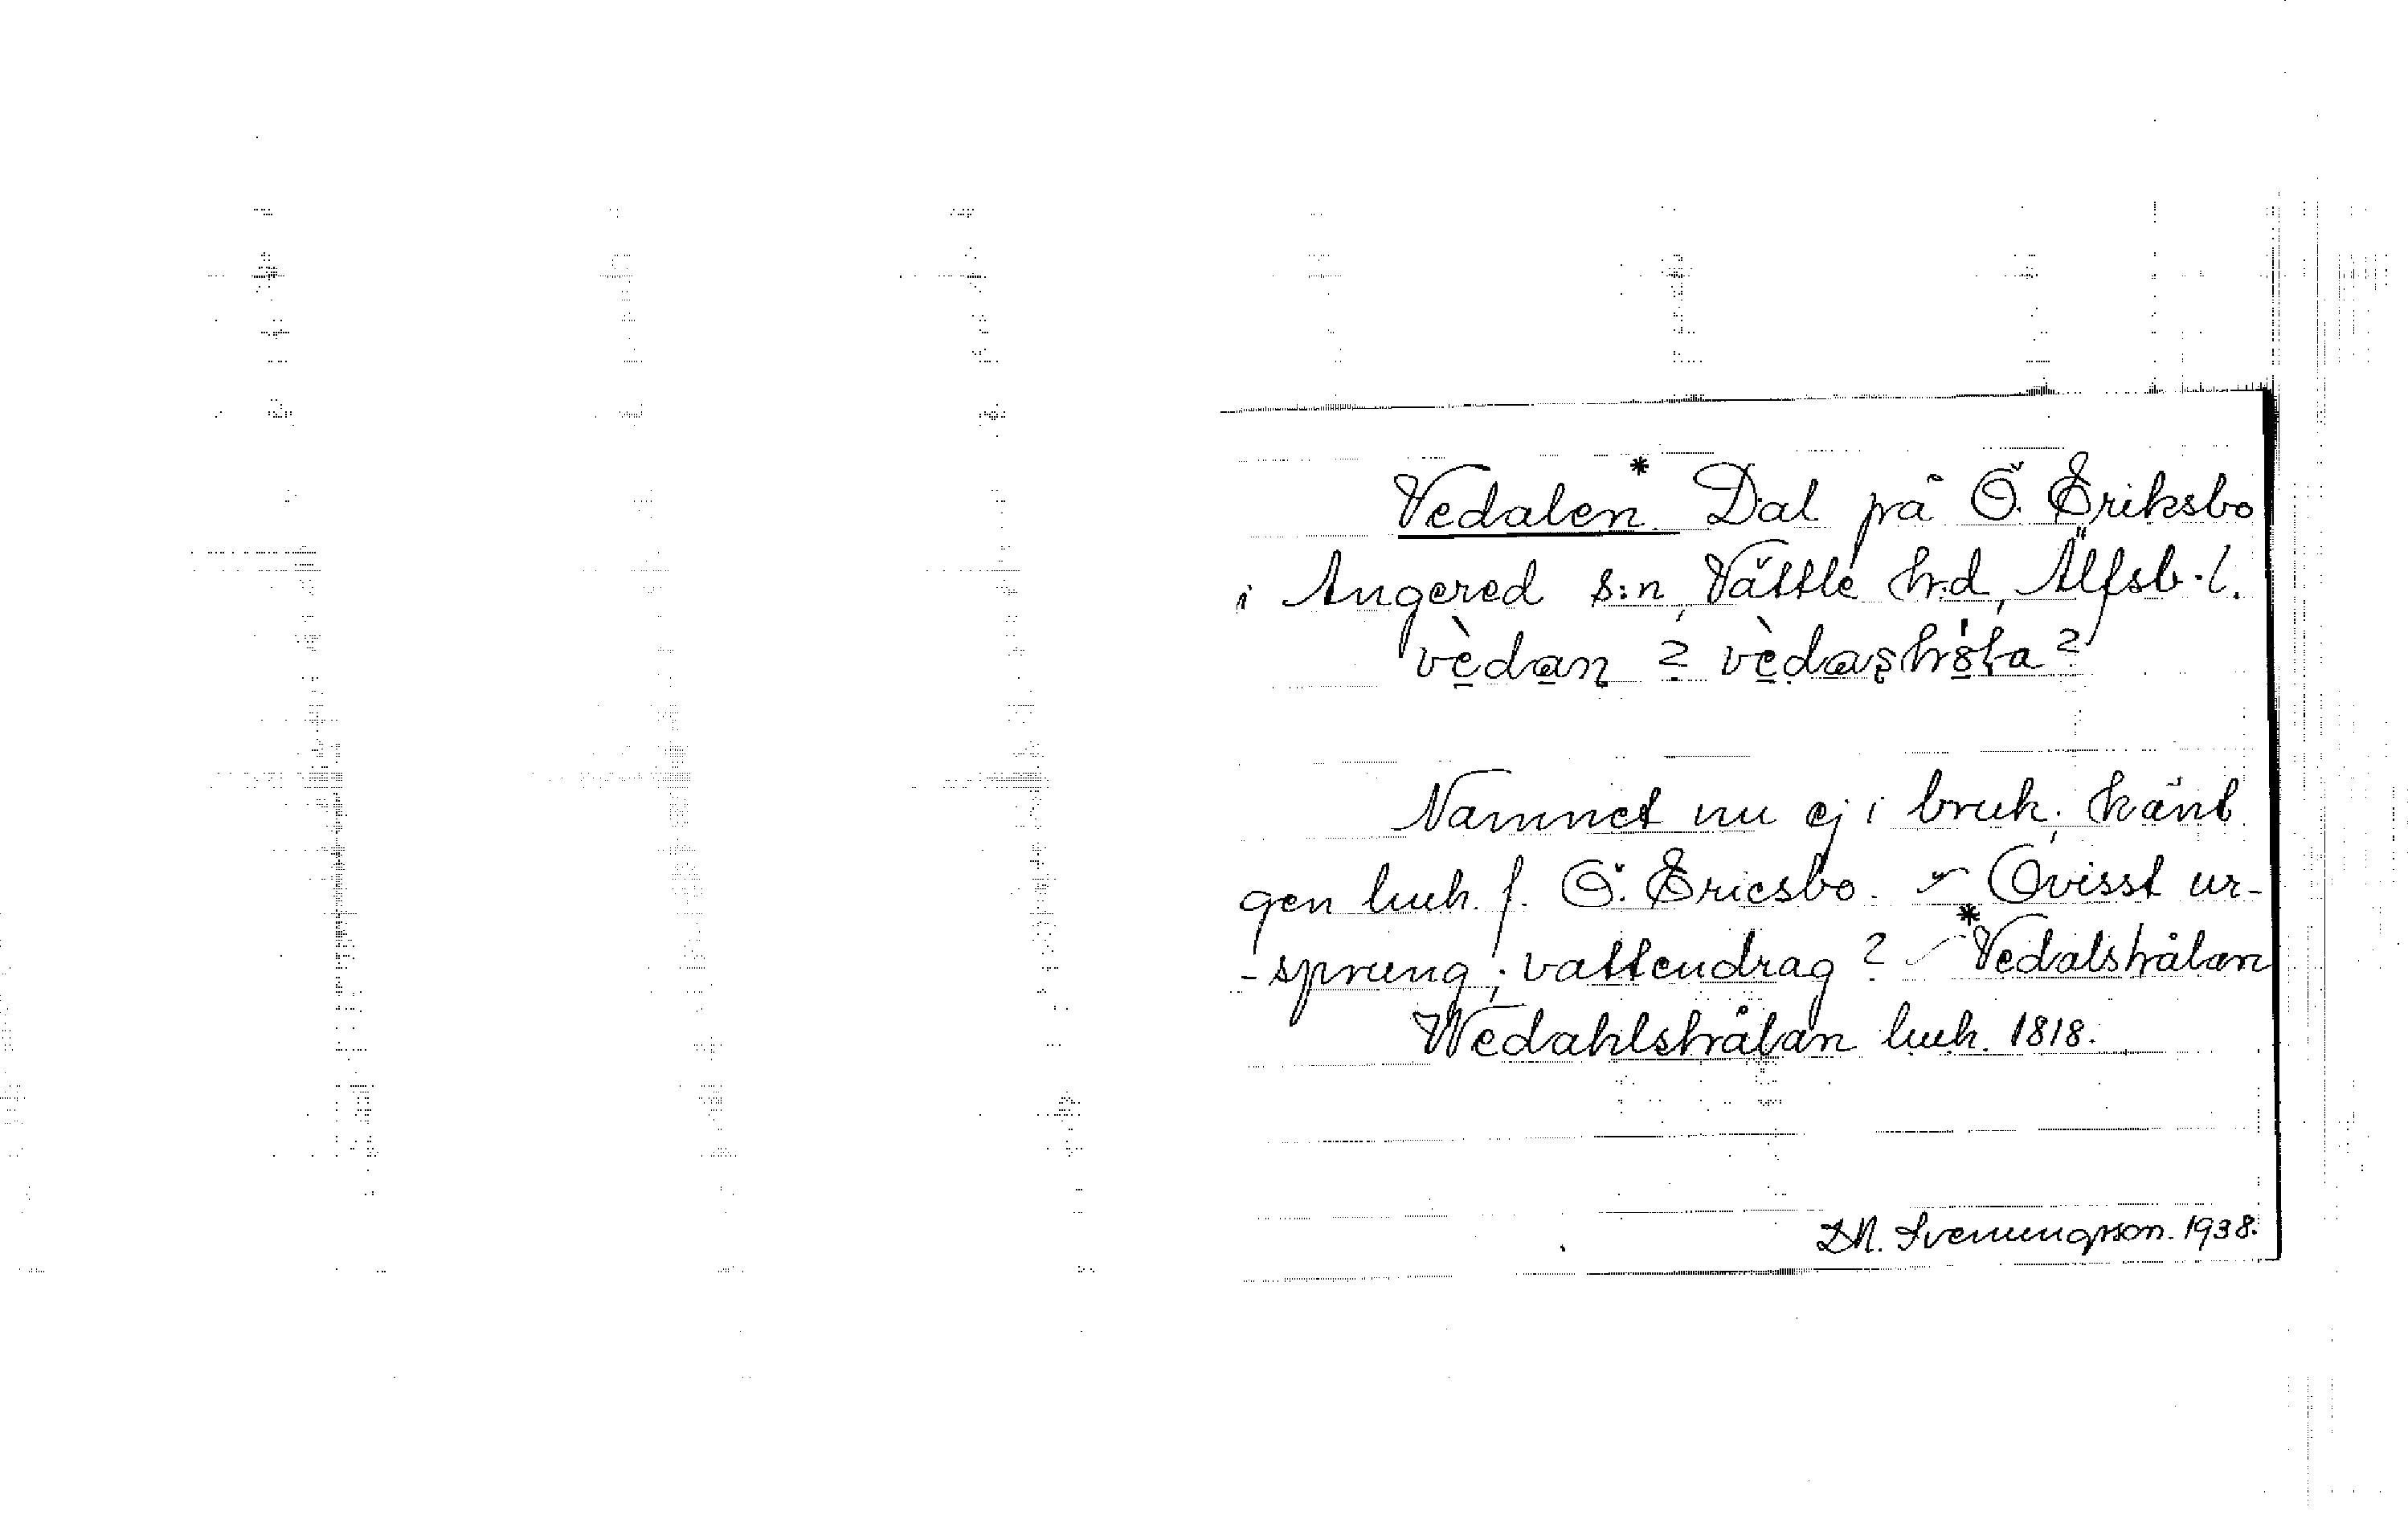 Vedalen.* Dal på Ö. Eriksbo
i Angered s:n, Vättle h:d, Älfsb. l.
vèdan ? vèdastråta ?
Namnet nu ej i bruk; känt
gen luk. f. Ö. Ericsbo. – Ovisst ur-
-sprung; vattendrag ? – *Vedalstråtan
Wedahlstråtan luk. 1818.
D.N. Svenungsson. 1938.